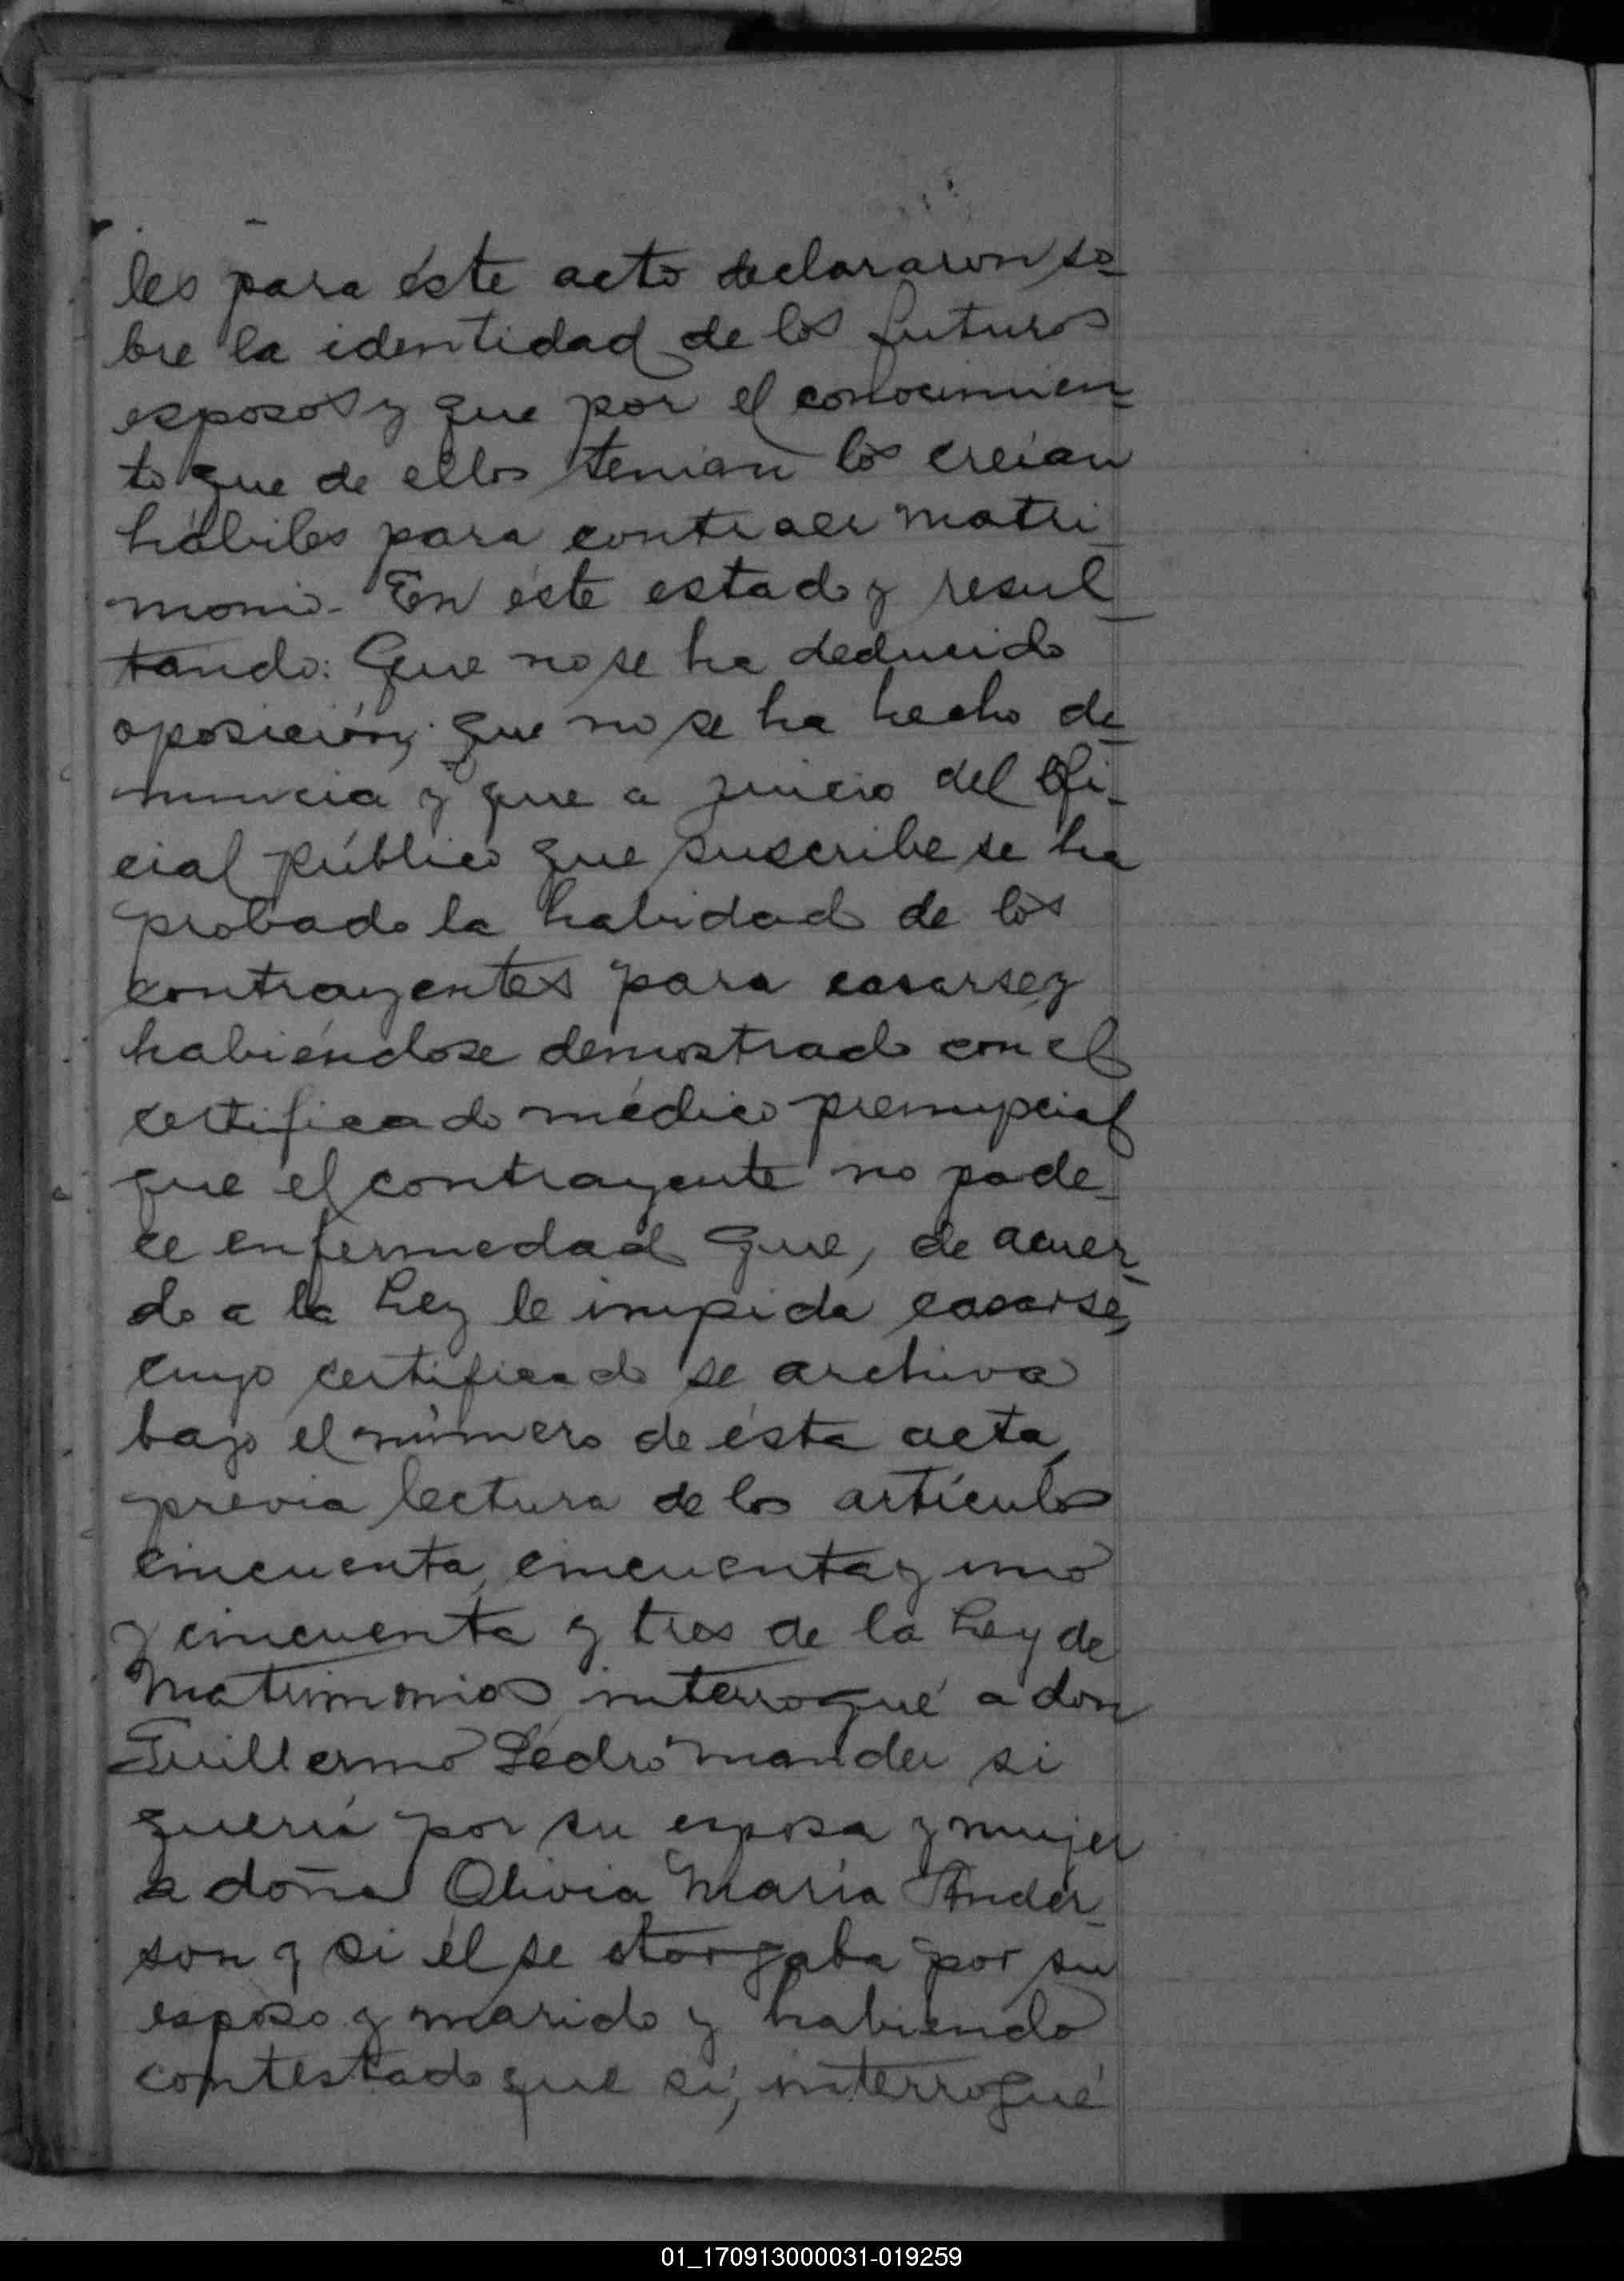 les para éste acto declararon so-
bre la identidad de los futuros
esposos y que por el conocimien-
to que de ellos tenían los creían
hábiles para contraer matri-
monio. En éste estado y resul-
tando: Que no se ha deducido
oposición; que no se ha hecho de-
nuncia y que a juicio del Ofi-
cial público que suscribe se ha
probado la habidad de los
contrayentes para casarse y
habiéndose demostrado con el
certificado médico prenupcial
que el contrayente no pade-
ce enfermedad que, de acuer-
do a la Ley le impida casarse,
cuyo certificado se archiva
bajo el número de ésta acta,
previa lectura de los artículos
cincuenta, cincuenta y uno
y cincuenta y tres de la Ley de
Matrimonios, interrogué a don
Guillermo Pedro Mander si
quería por su esposa y mujer
a doña Olivia María Ander-
son y si él se otorgaba por su
esposo y marido y habiendo
contestado que sí, interrogué
01_170913000031-019259